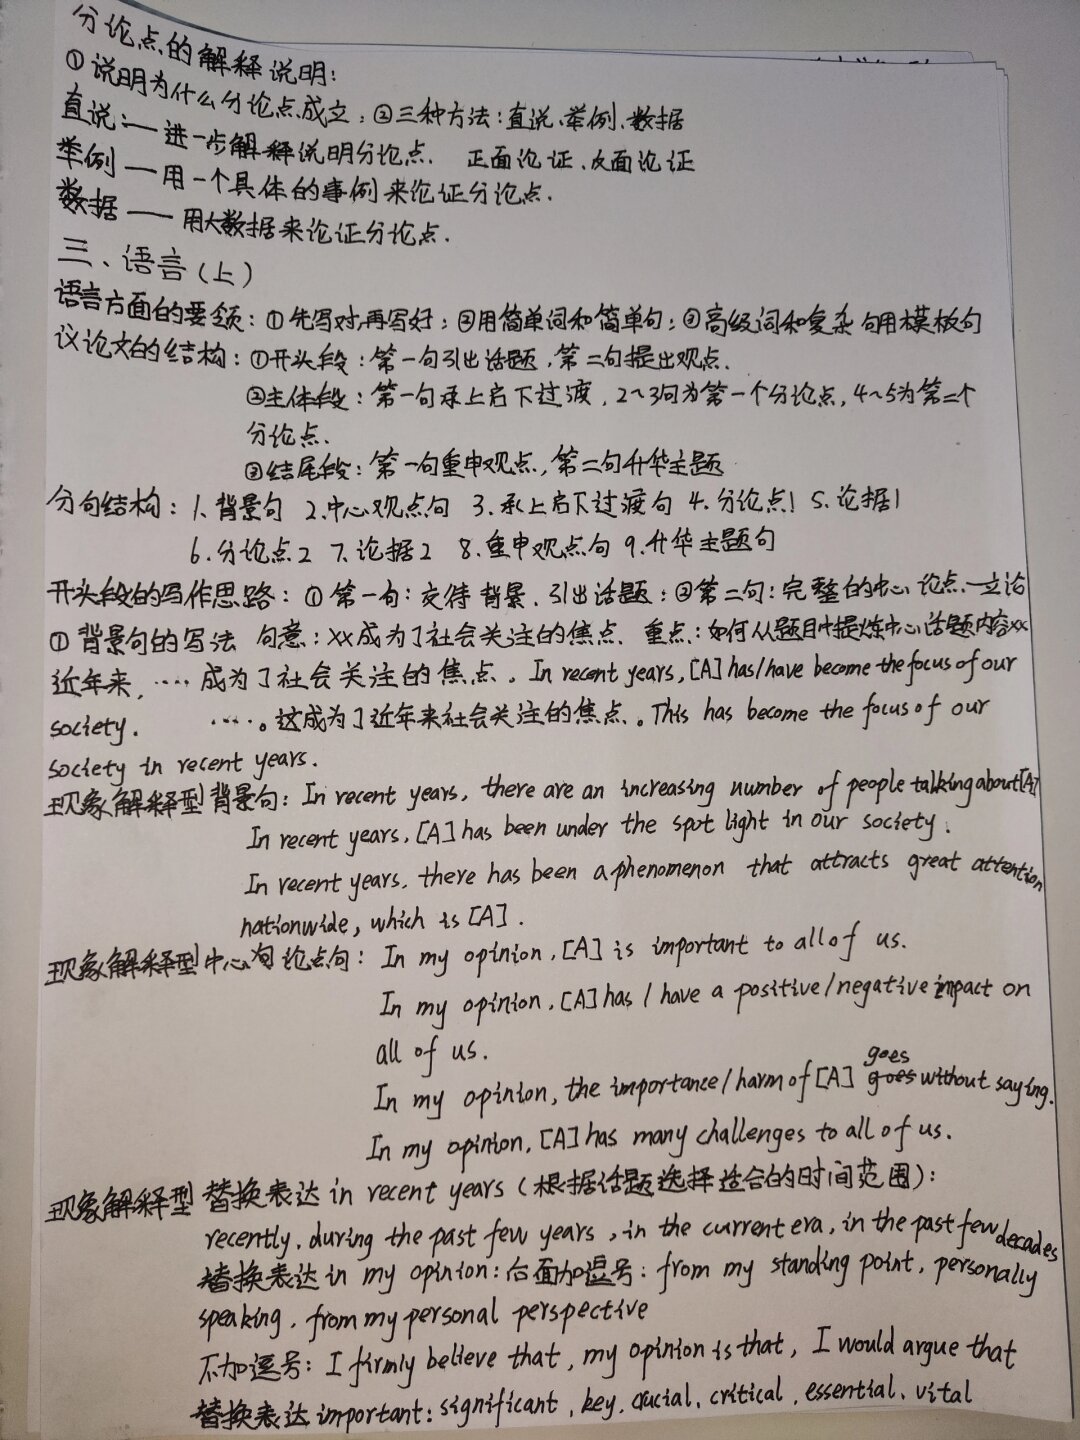 分论点的解释说明:
①说明为什么分论点成立;②三种方法:直说、举例、数据
直说:——进一步解释说明分论点. 正面论证、反面论证
举例——用一个具体的事例来论证分论点.
数据——用大数据来论证分论点.
三、语言(上)
语言方面的要领:①先写对,再写好;②用简单词和简单句;③高级词和复杂句用模板句
议论文的结构:①开头段:第一句引出话题,第二句提出观点.
②主体段:第一句承上启下过渡,2~3句为第一个分论点,4~5为第二个
分论点.
③结尾段:第一句重申观点,第二句升华主题
分句结构:1.背景句 2.中心观点句 3.承上启下过渡句 4.分论点1 5.论据1
6.分论点2 7.论据2 8.重申观点句 9.升华主题句
开头段的写作思路:①第一句:交待背景、引出话题;②第二句:完整的中心论点—立论
①背景句的写法 句意:xx成为了社会关注的焦点. 重点:如何从题目中提炼中心话题内容xx
近年来,……成为了社会关注的焦点。In recent years, [A] has/have become the focus of our
society. ……。这成为了近年来社会关注的焦点。This has become the focus of our
society in recent years.
现象解释型背景句:In recent years, there are an increasing number of people talking about [A]
In recent years, [A] has been under the spot light in our society.
In recent years, there has been a phenomenon that attracts great attention
nationwide, which is [A].
现象解释型中心句论点句:In my opinion, [A] is important to all of us.
In my opinion, [A] has / have a positive/negative impact on
all of us.
goes
In my opinion, the importance/harm of [A] goes without saying.
In my opinion, [A] has many challenges to all of us.
现象解释型替换表达in recent years(根据话题选择适合的时间范围):
recently, during the past few years, in the current era, in the past few decades
替换表达in my opinion:后面加逗号:from my standing point, personally
speaking, from my personal perspective
不加逗号:I firmly believe that, my opinion is that, I would argue that
替换表达important: significant, key, crucial, critical, essential, vital